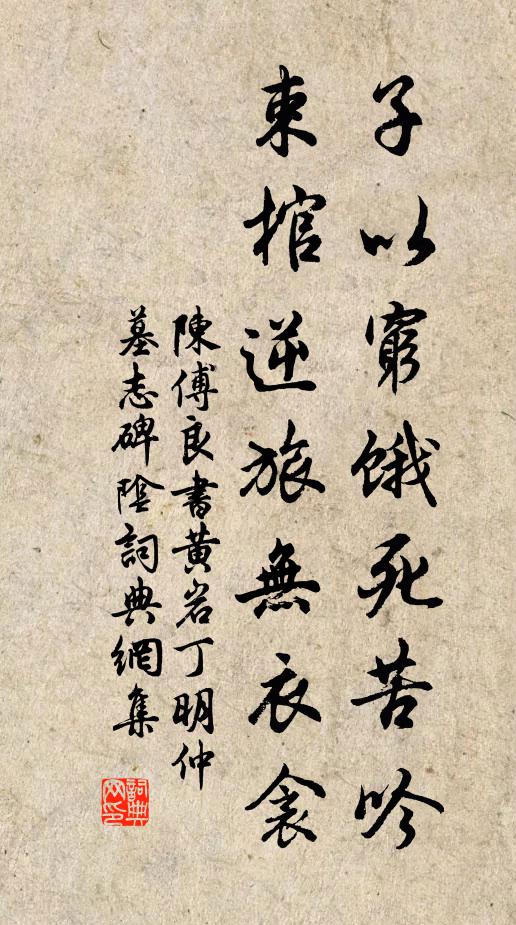 子以窮餓死苦吟
束棺逆旅無衣衾
陳傅良書黃岩丁明仲
墓志碑陰詞典網集
詞典网印